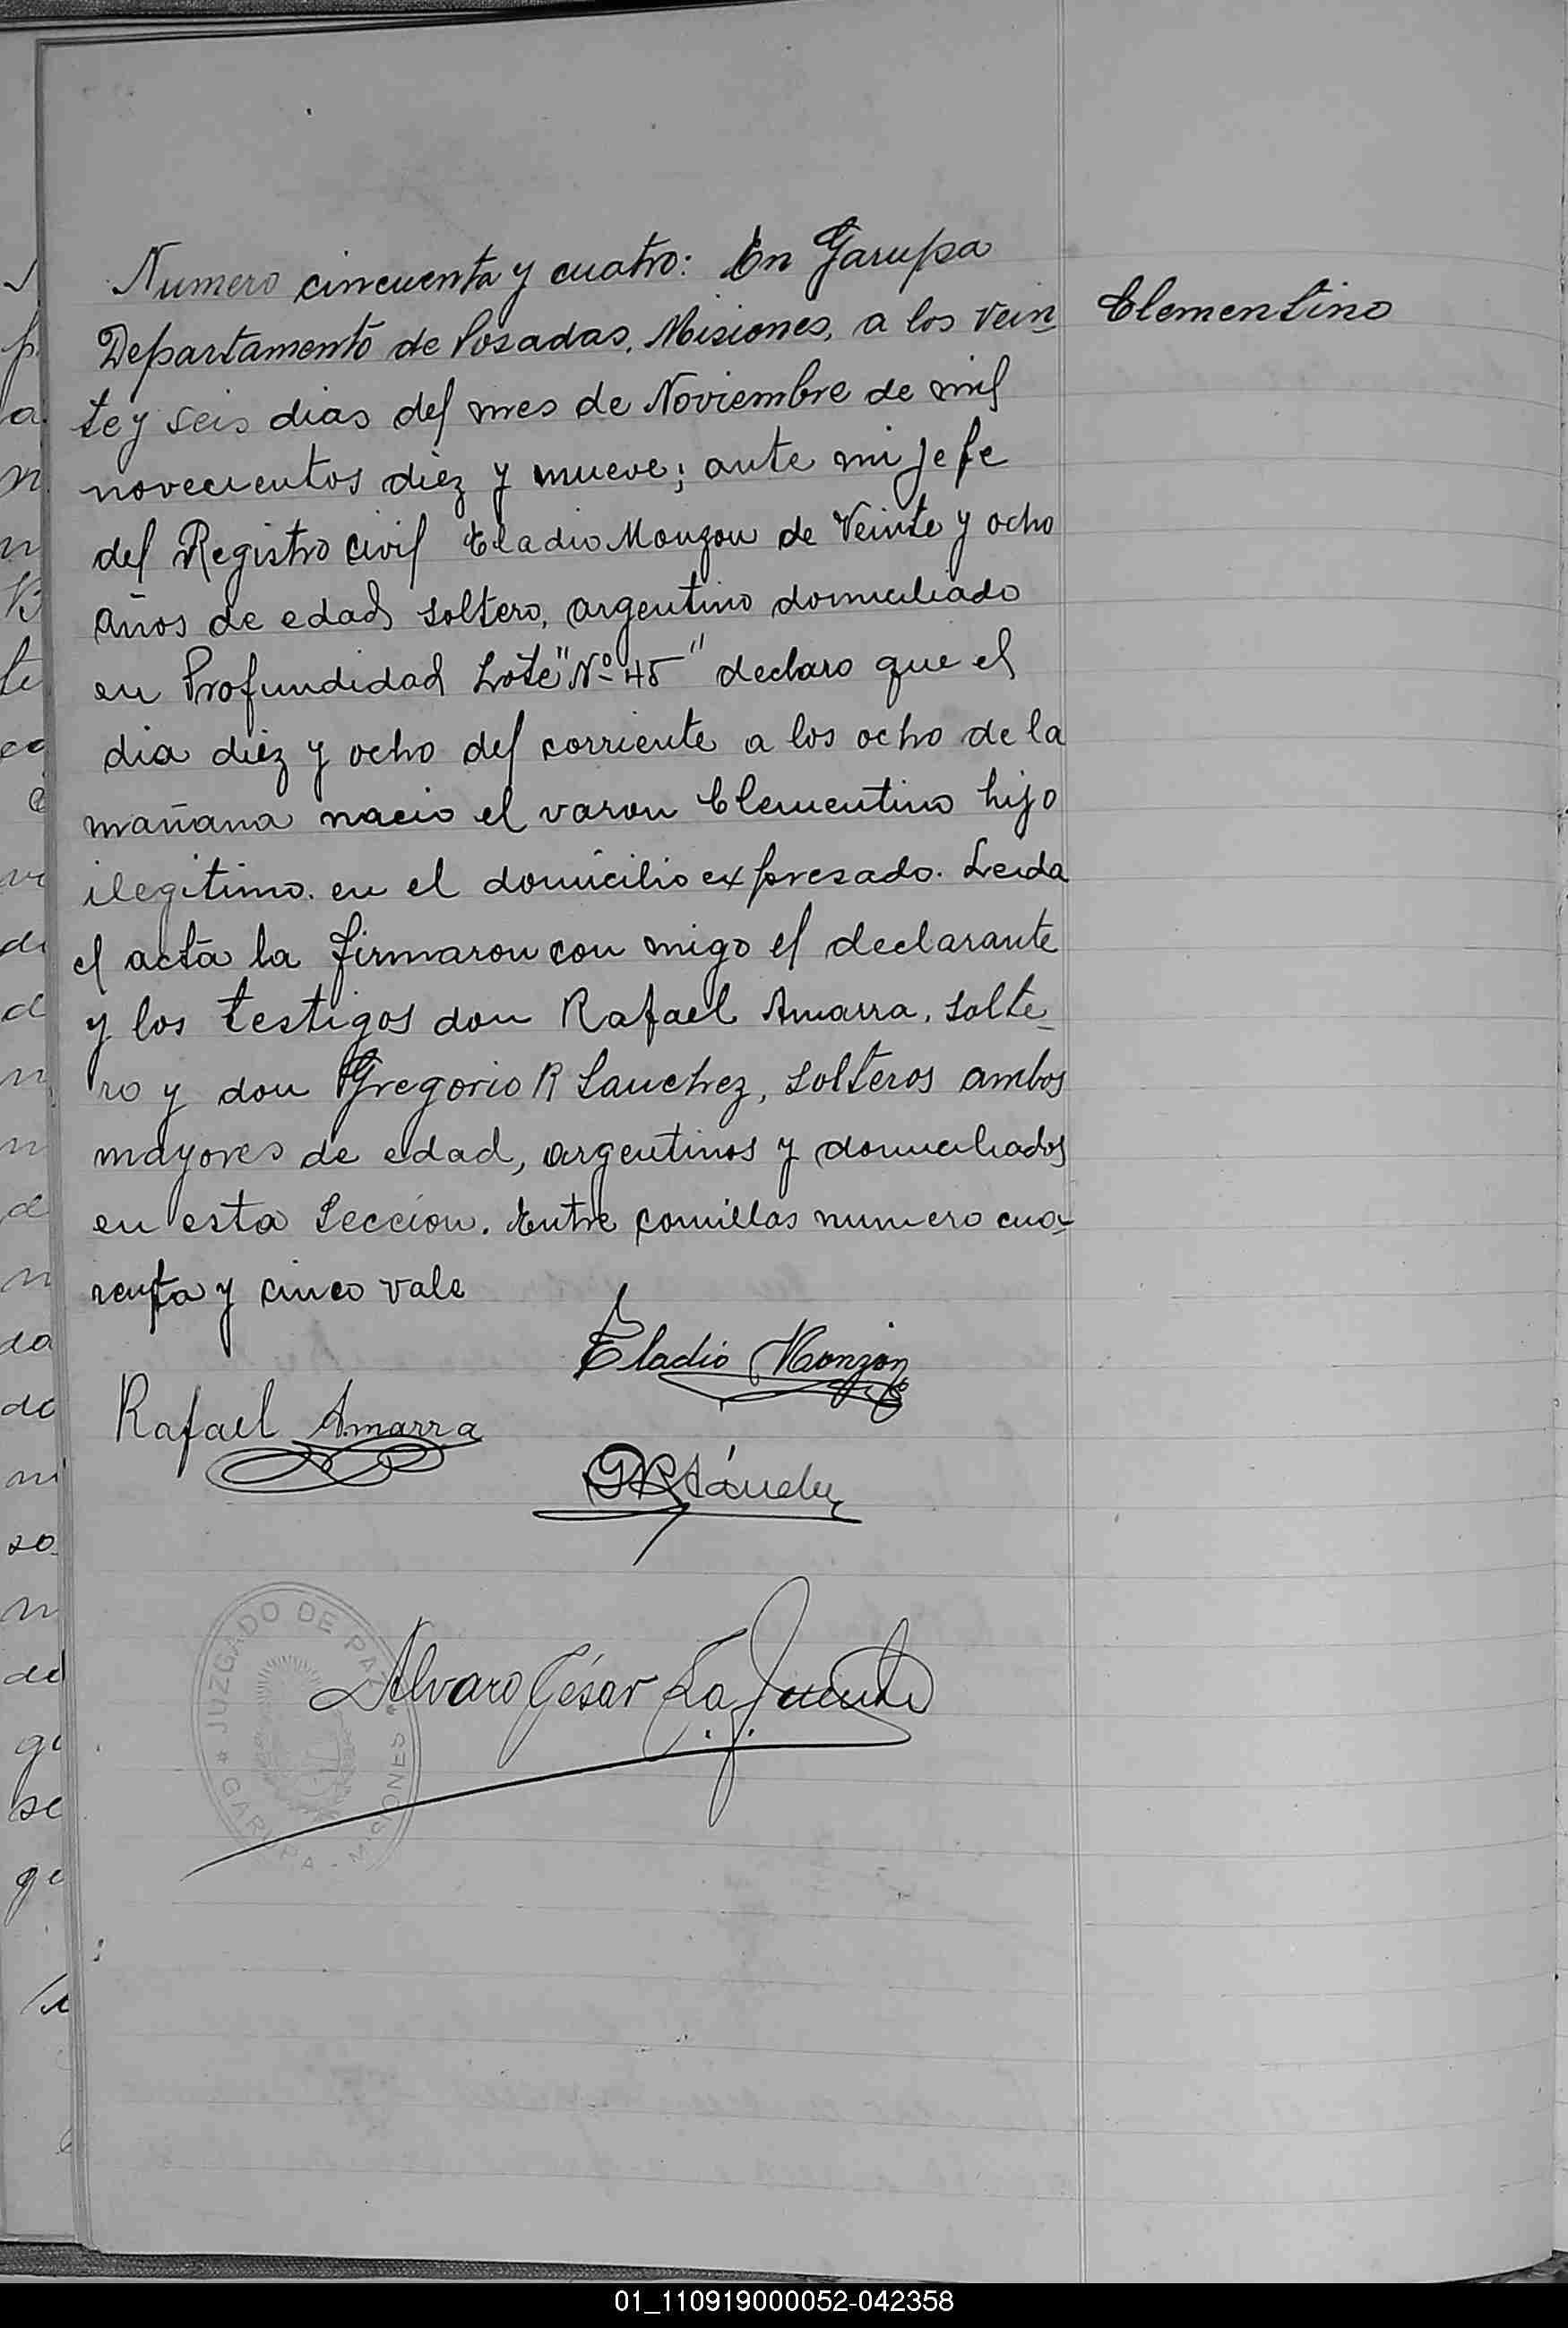 Numero cincuenta y cuatro: En Garupa
Departamento de Posadas, Misiones, a los vein
Clementino
te y seis dias del mes de Noviembre de mil
novecientos diez y nueve; ante mi Jefe
del Registro Civil Eladio Monzon de Veinte y ocho
años de edad, soltero, argentino domiciliado
en Profundidad Lote "Nº 45" declaro que el
dia diez y ocho del corriente a los ocho de la
mañana nacio el varon Clementino hijo
ilegitimo. en el domicilio expresado. Leida
el acta la firmaron con migo el declarante
y los testigos don Rafael Amarra, solte_
ro y don Gregorio R Sanchez, solteros ambos
mayores de edad, argentinos y domiciliados
en esta Seccion. Entre comillas numero cua-
renta y cinco vale
Eladio Monzon
Rafael Amarra
GRSánchez
JUZGADO DE PAZ
Alvaro César La Fuente
* GARUPA - MISIONES *
01_110919000052-042358